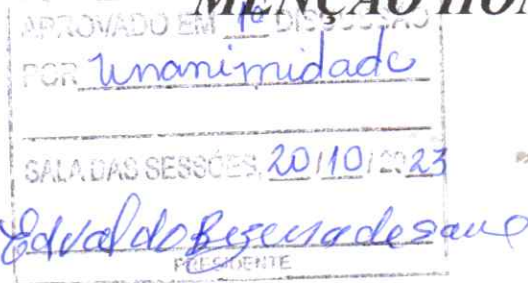 MENÇÃO HON
APROVADO EM 1ª DISCUSSÃO
POR Unanimidade
SALA DAS SESSÕES, 20/10/2023
Edvaldo Bezerra de
PRESIDENTE